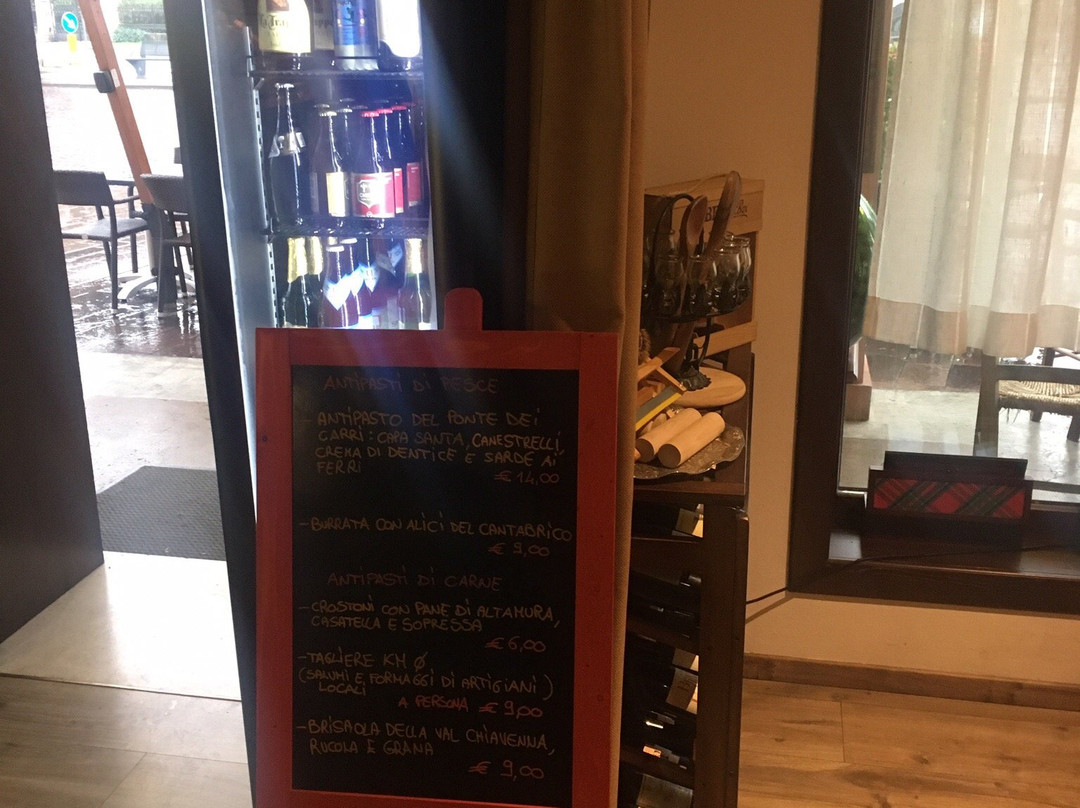 ANTIPASTI DI PESCE
- ANTIPASTO DEL PONTE DEI
CARRI: CAPA SANTA, CANESTRELLI,
CREMA DI DENTICE E SARDE AI
FERRI
€ 14,00
- BURRATA CON ALICI DEL CANTABRICO
€ 9,00
ANTIPASTI DI CARNE
- CROSTONI CON PANE DI ALTAMURA,
CASATELLA E SOPRESSA
€ 6,00
- TAGLIERE KM Ø
(SALUMI E FORMAGGI DI ARTIGIANI)
LOCALI
A PERSONA € 9,00
- BRISAOLA DELLA VAL CHIAVENNA,
RUCOLA E GRANA
€ 9,00